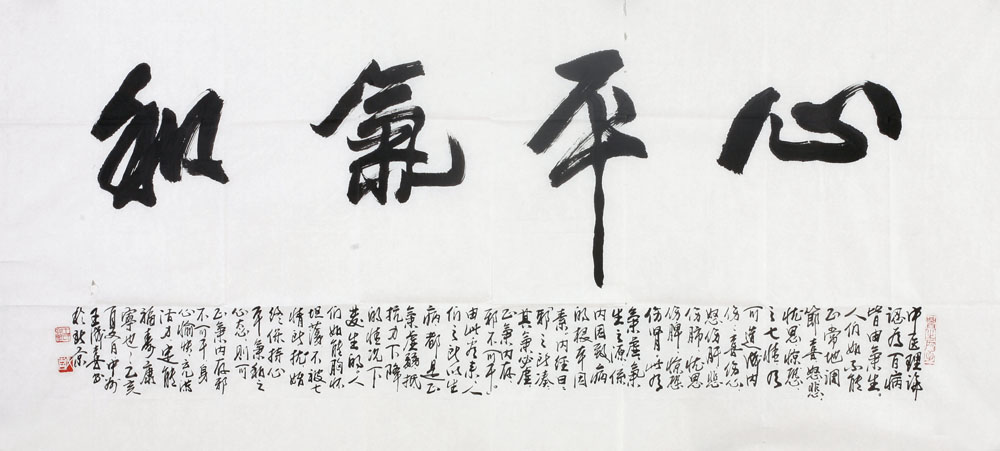 心平氣和
中医理论
认为百病
皆由气生，
人们如不能
正常地调
节喜怒悲
忧思惊恐
之七情乃
可造成内
伤：喜伤心，
怒伤肝，悲
伤肺，忧思
伤脾，惊恐
伤肾，此乃
氣虚，氣
生之源，係
内因致病
的根本因
素，内经曰：
邪之所凑
其氣必虚
正氣内存
邪不可干，
由此看来人
们之所以生
病都是正
氣虚弱抵
抗力下降
的情况下
发生的，人
们如能胸怀
坦荡不被七
情所扰始
终保持心
平氣和之
心态，则可
正氣内存邪
不可干，身
心愉快，充满
活力，定能
福寿康
寧也，乙亥
於北京